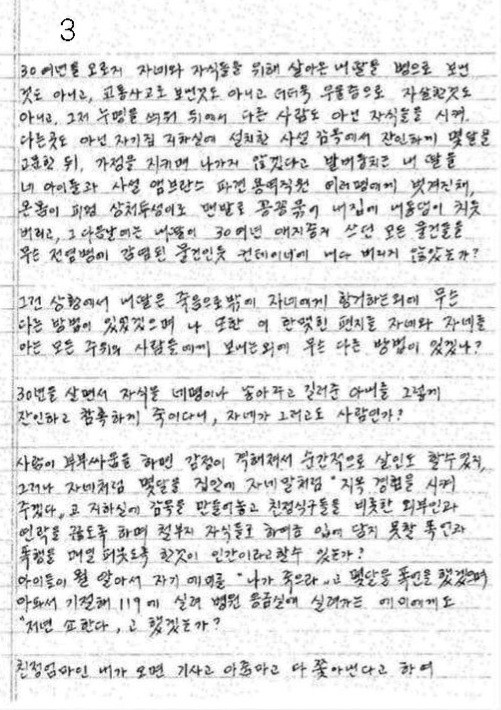 3
30여년을 오로지 자네와 자식들을 위해 살아온 내 딸을 병으로 보낸
것도 아니고, 교통사고로 보낸것도 아니고 더더욱 우울증으로 자살한것도
아니고, 그저 누명을 씌워 뒤에서 다른 사람도 아닌 자식들을 시켜,
다른곳도 아닌 자기집 지하실에 설치한 사설 감옥에서 잔인하게 몇달을
고문한 뒤, 가정을 지키며 나가지 않겠다고 발버둥치는 내 딸을
네 아이들과 사설 앰브란스 파견 용역직원 여러명에게 벗겨진채,
온몸이 피멍 상처투성이로 맨발로 꽁꽁 묶어 내집에 내동댕이 치듯
버리고, 그 다음날에는 내딸이 30여년 애지중지 쓰던 모든 물건들을
무슨 전염병이 감염된 물건인듯 컨테이너에 내다 버리지 않았는가?
그런 상황에서 내딸은 죽음으로밖에 자네에게 항거하는외에 무슨
다른 방법이 있었겠으며 나 또한 이 한맺힌 편지를 자네와 자네를
아는 모든 주위의 사람들에게 보내는외에 무슨 다른 방법이 있겠나?
30년을 살면서 자식을 네명이나 낳아주고 길러준 아내를 그렇게
잔인하고 참혹하게 죽이다니, 자네가 그러고도 사람인가?
사람이 부부싸움을 하면 감정이 격해져서 순간적으로 살인도 할수있지,
그러나 자네처럼 몇달을 집안에 자네 말처럼 "지옥 경험을 시켜
주겠다„ 고 지하실에 감옥을 만들어놓고 친정식구들을 비롯한 외부인과
연락을 끊도록 하며 철부지 자식들로 하여금 입에 담지 못할 폭언과
폭행을 매일 퍼붓도록 한것이 인간이라고할수 있는가?
아이들이 뭘 알아서 자기 에미를 "나가 죽으라„고 몇달을 폭언을 했겠으며
아파서 기절해 119에 실려 병원 응급실에 실려가는 에미에게도
"저년 쇼한다„ 고 했겠는가?
친정엄마인 내가 오면 기사고 아줌마고 다 쫓아낸다고 하여